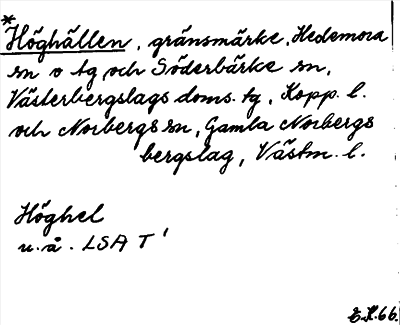 * Höghällen, gränsmärke, Hedemora
sn o tg och Söderbärke sn,
Västerbergslags doms. tg, Kopp. l.
och Norbergs sn, Gamla Norbergs
bergslag, Västm. l.
Höghel
u. å. LSA T'
E.H.66.